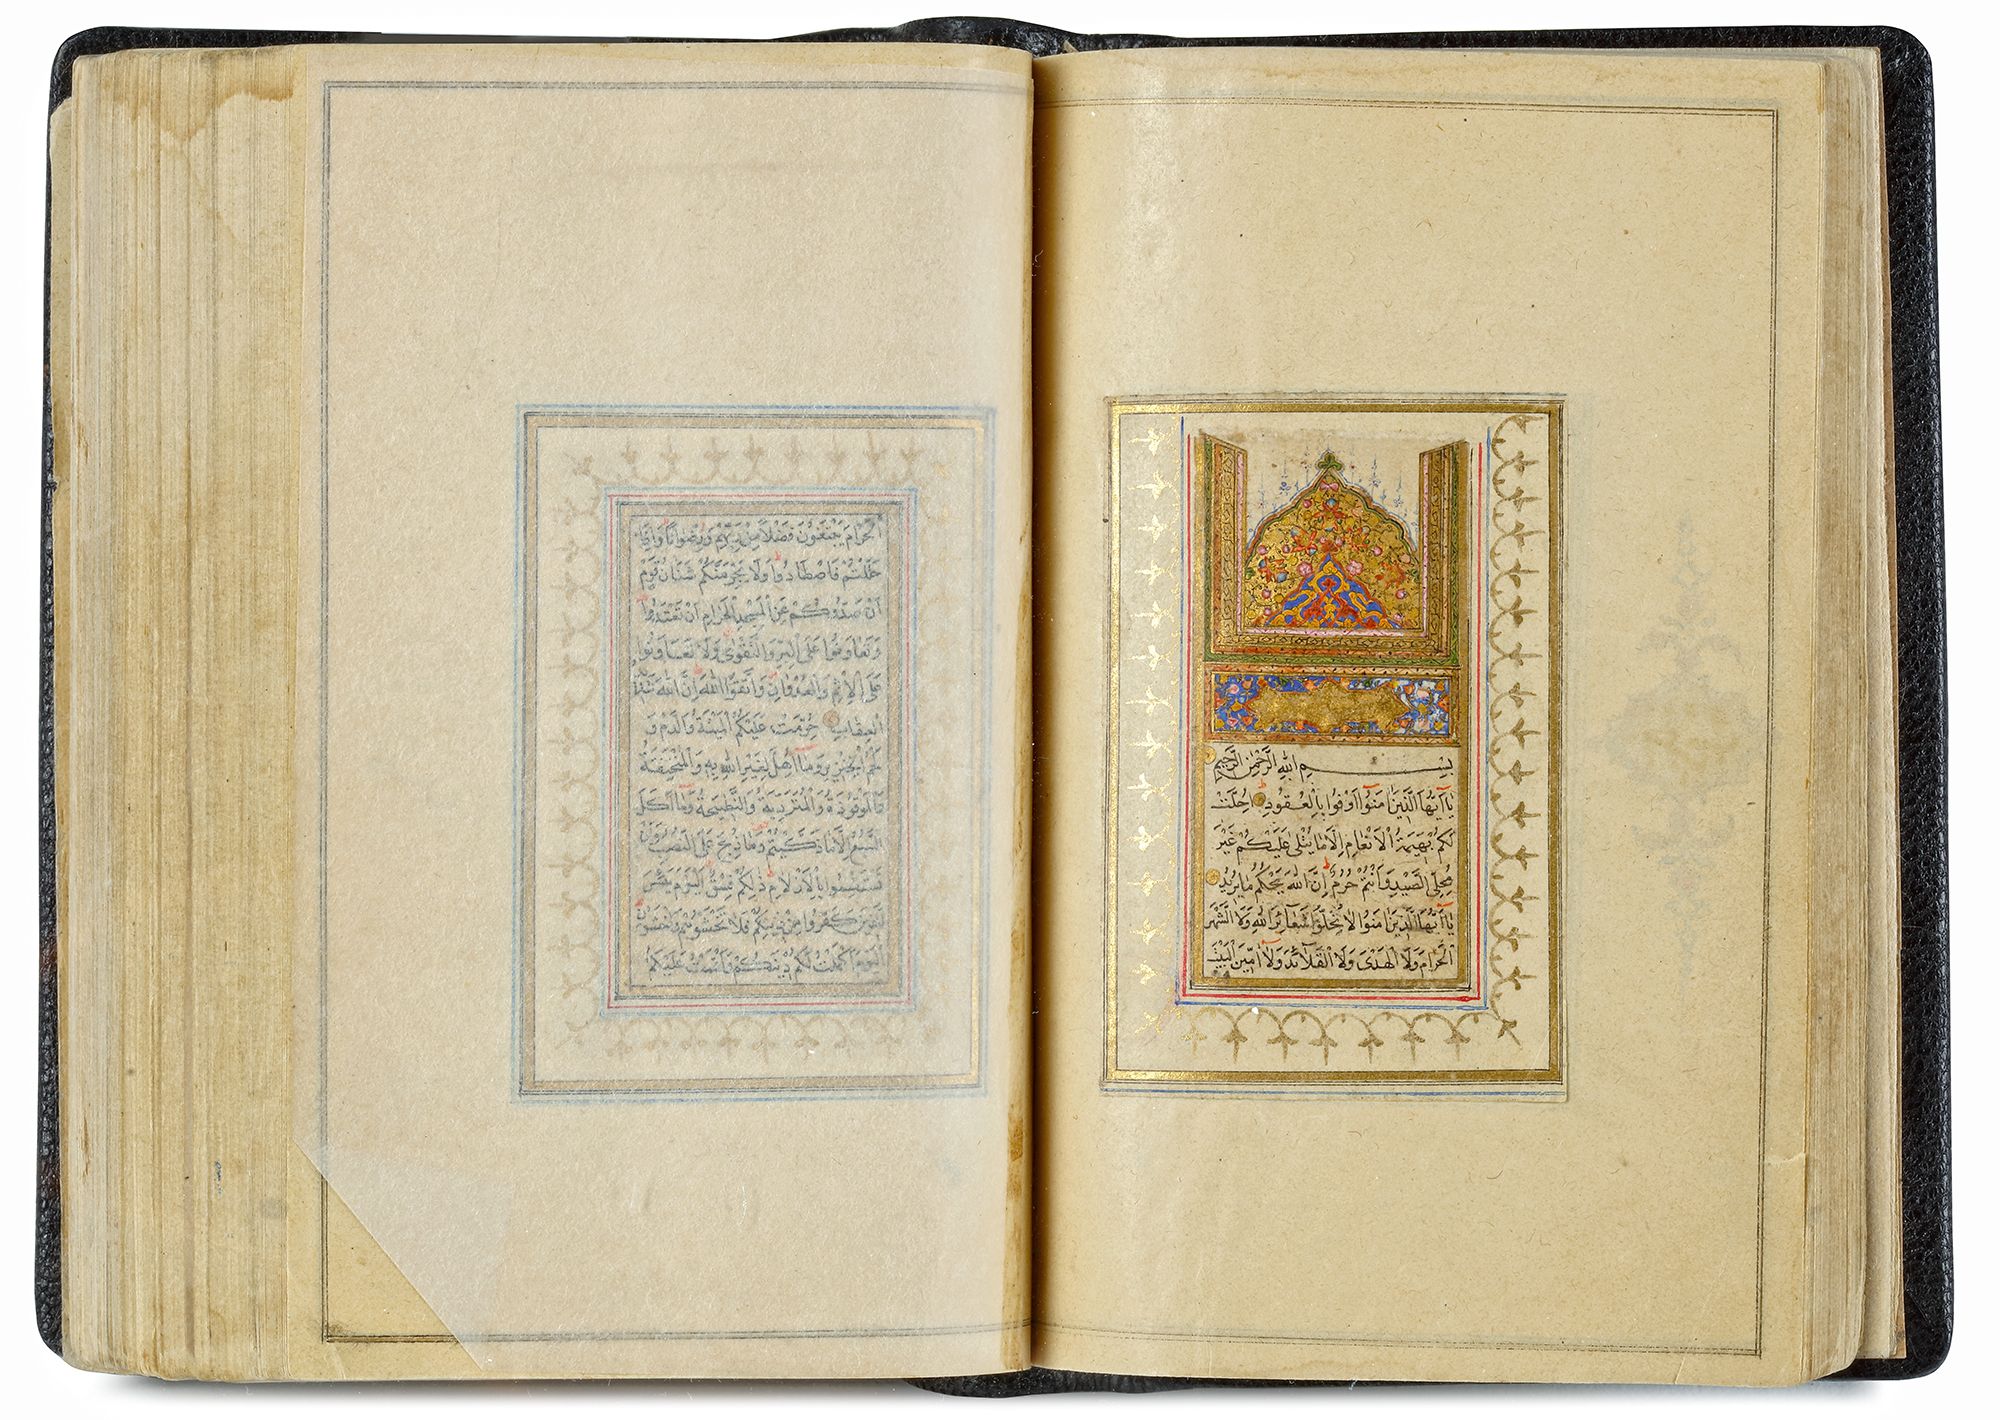 بِسْمِ اللهِ الرَّحْمٰنِ الرَّحِيمِ
يَا اَيُّهَا الَّذِينَ اٰمَنُوا اَوْفُوا بِالْعُقُودِ اُحِلَّتْ
لَكُمْ بَهِيمَةُ الْاَنْعَامِ اِلَّا مَا يُتْلٰى عَلَيْكُمْ غَيْرَ
مُحِلِّى الصَّيْدِ وَاَنْتُمْ حُرُمٌ اِنَّ اللهَ يَحْكُمُ مَا يُرِيدُ
يَا اَيُّهَا الَّذِينَ اٰمَنُوا لَا تُحِلُّوا شَعَآئِرَ اللهِ وَلَا الشَّهْرَ
الْحَرَامَ وَلَا الْهَدْىَ وَلَا الْقَلَآئِدَ وَلَا اٰمِّينَ الْبَيْتَ
الْحَرَامَ يَبْتَغُونَ فَضْلًا مِنْ رَبِّهِمْ وَرِضْوَانًا وَاِذَا
حَلَلْتُمْ فَاصْطَادُوا وَلَا يَجْرِمَنَّكُمْ شَنَاٰنُ قَوْمٍ
اَنْ صَدُّوكُمْ عَنِ الْمَسْجِدِ الْحَرَامِ اَنْ تَعْتَدُوا
وَتَعَاوَنُوا عَلَى الْبِرِّ وَالتَّقْوٰى وَلَا تَعَاوَنُوا
عَلَى الْاِثْمِ وَالْعُدْوَانِ وَاتَّقُوا اللهَ اِنَّ اللهَ شَدِيدُ
الْعِقَابِ حُرِّمَتْ عَلَيْكُمُ الْمَيْتَةُ وَالدَّمُ وَ
لَحْمُ الْخِنْزِيرِ وَمَا اُهِلَّ لِغَيْرِ اللهِ بِهِ وَالْمُنْخَنِقَةُ
وَالْمَوْقُوذَةُ وَالْمُتَرَدِّيَةُ وَالنَّطِيحَةُ وَمَا اَكَلَ
السَّبُعُ اِلَّا مَا ذَكَّيْتُمْ وَمَا ذُبِحَ عَلَى النُّصُبِ وَاَنْ
تَسْتَقْسِمُوا بِالْاَزْلَامِ ذٰلِكُمْ فِسْقٌ الْيَوْمَ يَئِسَ
الَّذِينَ كَفَرُوا مِنْ دِينِكُمْ فَلَا تَخْشَوْهُمْ وَاخْشَوْنِ
الْيَوْمَ اَكْمَلْتُ لَكُمْ دِينَكُمْ وَاَتْمَمْتُ عَلَيْكُمْ